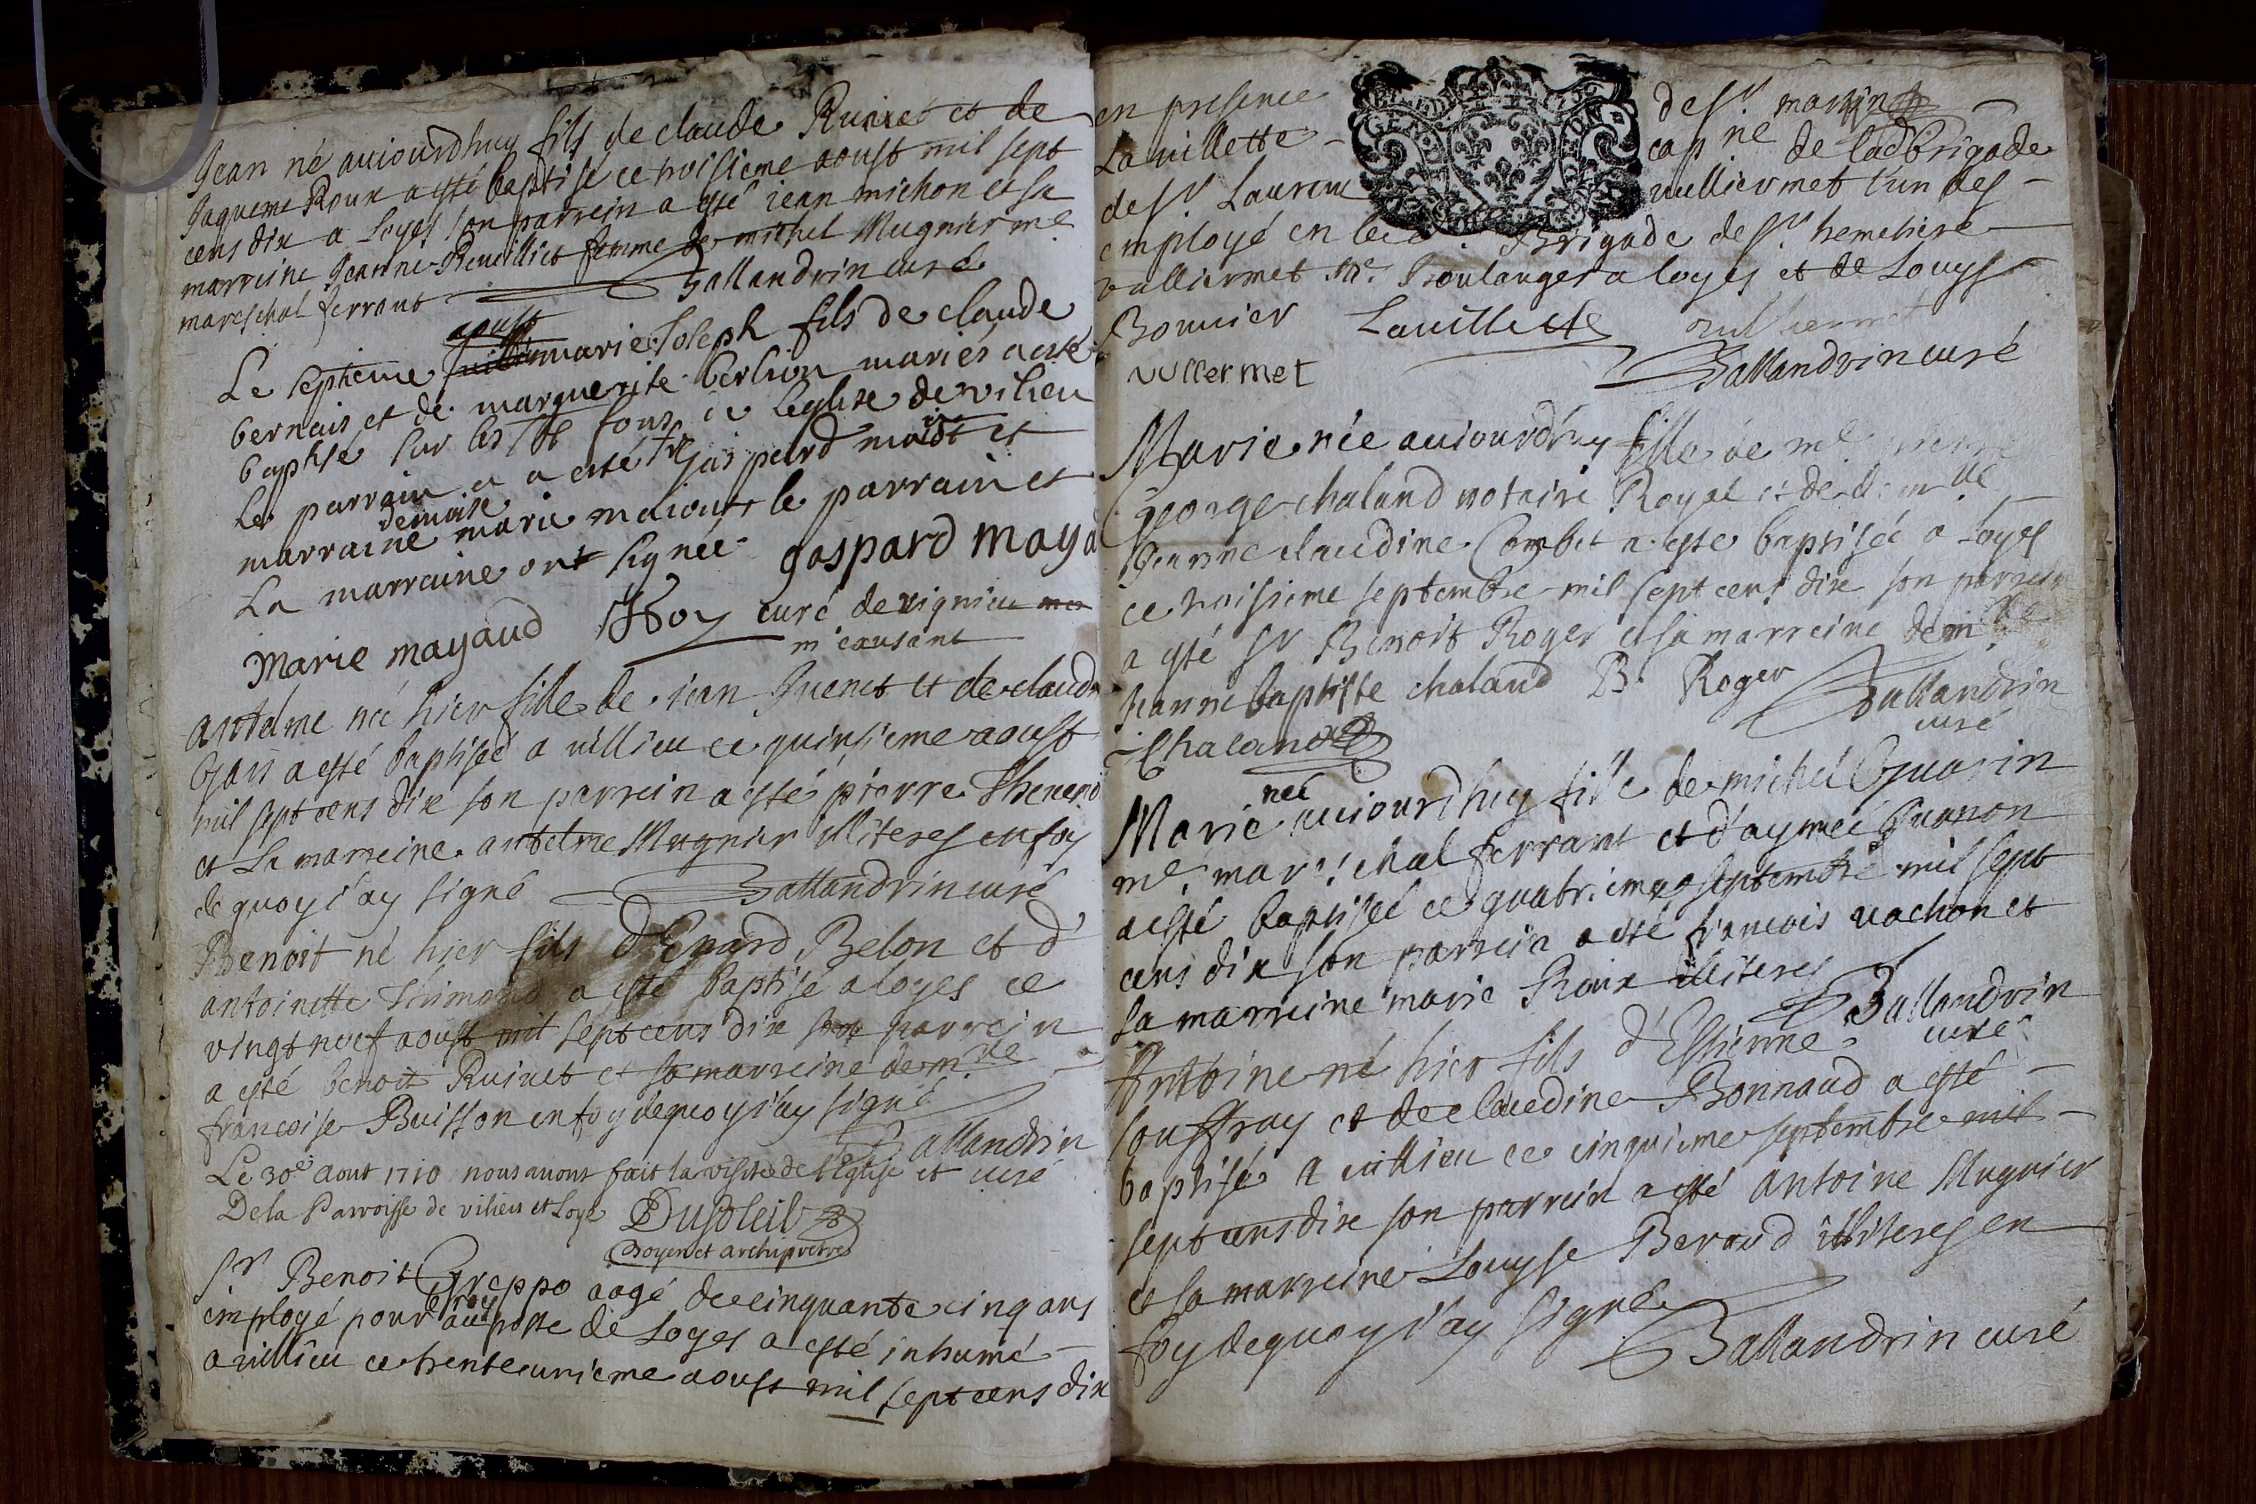 Jean né auiourdhuy fils de claude Ruinet et de
Jaqueme Roux a esté baptisé ce troisieme aoust mil sept
cens dix a Loyes son parrein a esté jean michon et sa
marreine Jeanne femme de michel Mugnier me
mareschal ferrant Ballandrin curé
aoust
Le septieme marie Joseph fils de claude
bernais et de marguerite berlion mariés a esté
baptisé sur les fons de leglise de vilieu
Le parrain a esté gaspard et
demoise
marraine marie le parrain et
La marraine ont signée gaspard maya
marie mayaud Roy curé de
m'excusant
antelme né hier fille de jean Juenet et de claudi
a esté baptiseé a uillieu ce quinsieme aoust
mil sept cens dix son parrein a esté pierre
et sa marreine antelme Mugnier illiteres en foy
de quoy i'ay signé Ballandrin curé
Benoit né hier fils d'Enard Belon et d'
antoinette a esté baptisé a loyes ce
vingt neuf aoust mil sept cens dix son parrein
a esté benoit Ruinet et sa marreine demlle
francoise Buisson en foy de quoy i'ay signé
Ballandrin
Le 30e aout 1710 nous auons fait la visite de l'Eglise et curé
De la Parroisse de vilieu et Loye Dusoleil
Doyen et archiprêtre
Sr Benoit Greppo aagé de cinquante cinq ans
employé pour le roy au poste de Loyes a esté inhumé
a uillieu ce trente unieme aoust mil sept cens dix
en presence de Sr
Lauillette capne de lad brigade
de Sr Laurent uulliermet l'un des
employé en Brigade de Sr
vulliermet Me Boulanger a loyes et de Louys
Bouuier Lauillette
vullermet Ballandrin curé
Marie née auiourdhuy fille de me pierre
George chaland notaire Royal et de demlle
Jeanne claudine Combet a este baptisée a Loyes
ce troisieme septembre mil sept cens dix son parrein
a esté Sr Benoit Roger et sa marreine demlle
Jeanne baptiste chaland B. Roger Ballandrin
curé
Chaland
neé
Marie auiourdhuy fille de michel Guarin
me mareschal ferrant et d'aymeé Juanon
a esté baptiseé ce quatrieme septembre mil sept
cens dix son parrein a esté francois uachon et
sa marreine marie Roux illiteres Ballandrin
curé
Antoine né hier fils d'Estienne
souffray et de claudine Bonnaud a esté
baptisé a uillieu ce cinquieme septembre mil
sept cens dix son parrein a esté antoine Mugnier
et sa marreine Louyse Beraud illiteres en
foy de quoy i'ay signé
Ballandrin curé